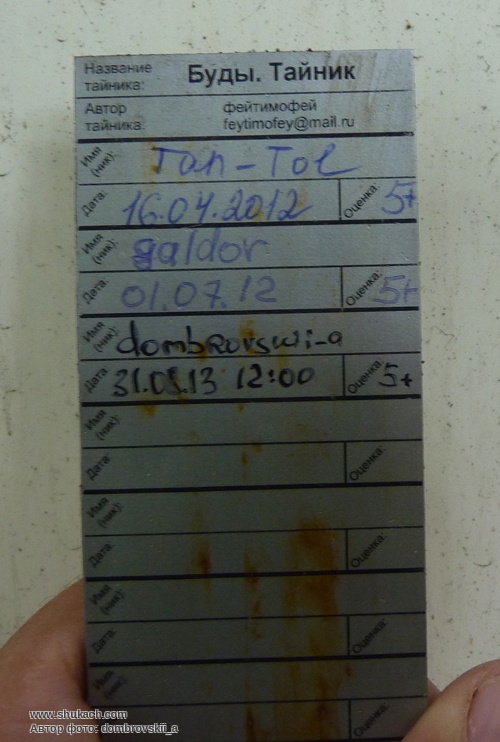 Название тайника: Буды. Тайник
Автор тайника: фейтимофей
feytimofey@mail.ru
Имя (ник): Топ-Tol
Дата: 16.04.2012 Оценка: 5+
Имя (ник): galdor
Дата: 01.07.12 Оценка: 5+
Имя (ник): dombrovswi_a
Дата: 31.03.13 12:00 Оценка: 5+
Имя (ник):
Дата: Оценка:
Имя (ник):
Дата: Оценка:
Имя (ник):
Дата: Оценка:
Имя (ник):
Оценка:
www.shukach.com
Автор фото: dombrovskii_a